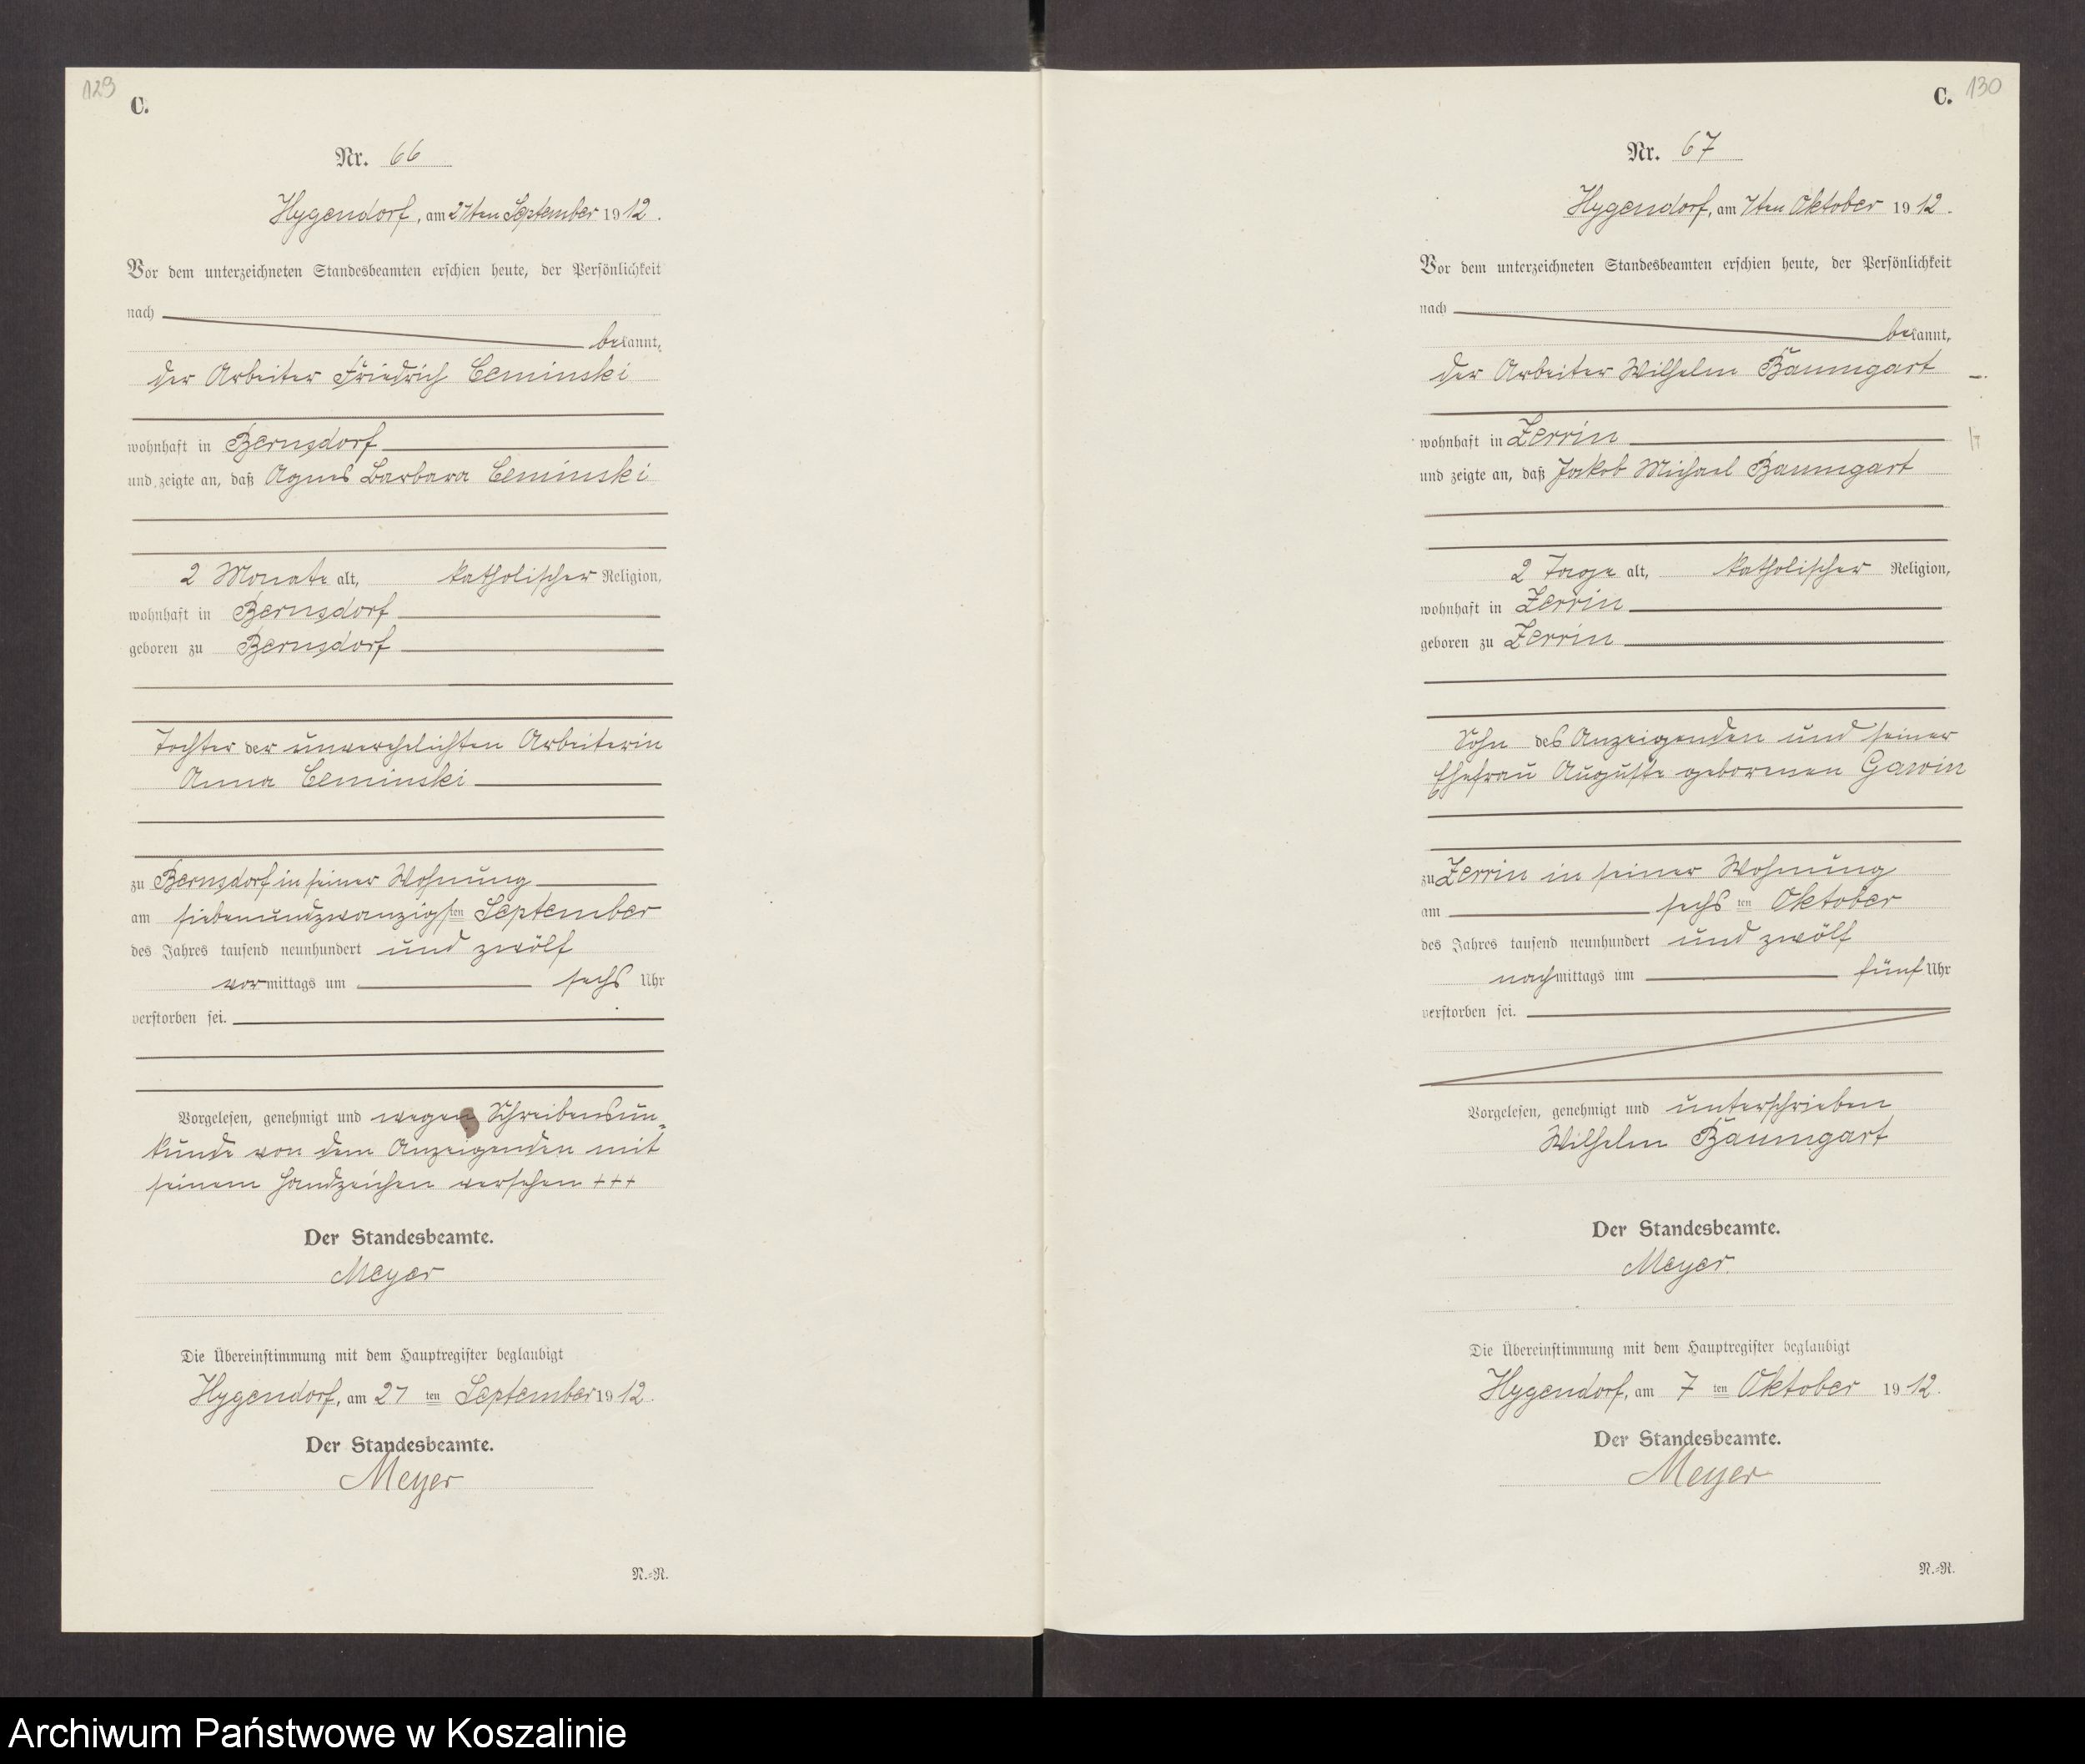 129
C.
Nr. 66
Hygendorf, am 27ten September 1912.
Vor dem unterzeichneten Standesbeamten erschien heute, der Persönlichkeit
nach
bekannt,
der Arbeiter Friedrich Ceminski
wohnhaft in Bernsdorf
und zeigte an, daß Agnes Barbara Ceminski
2 Monate alt, katholischer Religion,
wohnhaft in Bernsdorf
geboren zu Bernsdorf
Tochter der unverehelichten Arbeiterin
Anna Ceminski
zu Bernsdorf in seiner Wohnung
am siebenundzwanzigsten September
des Jahres tausend neunhundert und zwölf
vormittags um sechs Uhr
verstorben sei.
Vorgelesen, genehmigt und wegen Schreibensun-
kunde von dem Anzeigenden mit
seinem Handzeichen versehen +++
Der Standesbeamte.
Meyer
Die Übereinstimmung mit dem Hauptregister beglaubigt
Hygendorf, am 27 ten September 1912.
Der Standesbeamte.
Meyer
N.-R.
C. 130
Nr. 67
Hygendorf, am 7ten Oktober 1912.
Vor dem unterzeichneten Standesbeamten erschien heute, der Persönlichkeit
nach
bekannt,
der Arbeiter Wilhelm Baumgart
wohnhaft in Zerrin
und zeigte an, daß Jakob Michael Baumgart
2 Tage alt, katholischer Religion,
wohnhaft in Zerrin
geboren zu Zerrin
Sohn des Anzeigenden und seiner
Ehefrau Auguste geborenen Gawin
zu Zerrin in seiner Wohnung
am sechsten Oktober
des Jahres tausend neunhundert und zwölf
nachmittags um fünf Uhr
verstorben sei.
Vorgelesen, genehmigt und unterschrieben
Wilhelm Baumgart
Der Standesbeamte.
Meyer.
Die Übereinstimmung mit dem Hauptregister beglaubigt
Hygendorf, am 7 ten Oktober 1912.
Der Standesbeamte.
Meyer
N.-R.
Archiwum Państwowe w Koszalinie